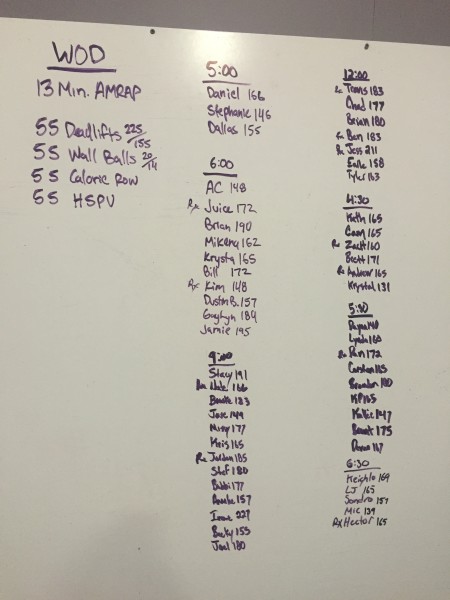 WOD
13 Min. AMRAP
55 Deadlifts 225/155
55 Wall Balls 20/14
55 Calorie Row
55 HSPU
5:00
Daniel 166
Stephanie 146
Dallas 155
6:00
AC 148
Rx Juice 172
Brian 190
Mikeny 162
Krysta 165
Bill 172
Rx Kim 148
Dustin B. 157
184
Jamie 195
9:00
Stacy 191
Rx Nate 166
183
Jose 149
Missy 177
Kris 165
Rx Jordan 185
Stef 180
Bobbi 177
157
Irene 227
Becky 153
Joel 180
12:00
Rx Travis 183
Chad 177
Brian 180
Rx Ben 183
Rx Jess 211
158
Tyler 163
4:30
Keith 165
165
Rx Zach 160
Brett 171
Rx Andrew 165
Krystal 131
5:30
Lynda 160
Rx 172
165
Brandon 180
KP 165
Katie 147
175
167
6:30
169
LJ 165
Sandra 157
Mic 139
Rx Hector 165